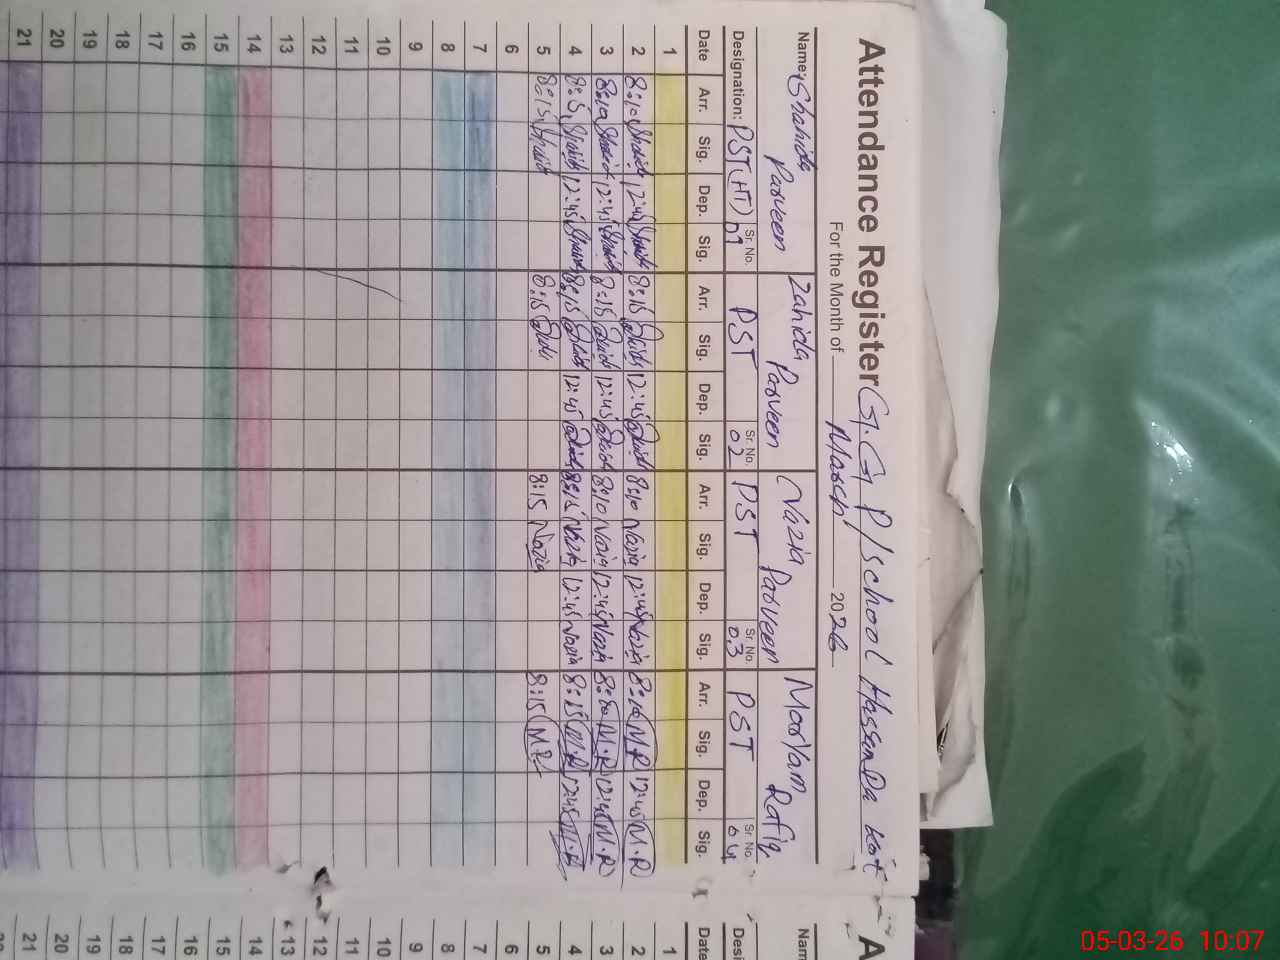 Attendance Register G.G P/school Hassan Da kot
For the Month of March 2026
Name: Shahida Parveen Zahida Parveen Nazia Parveen Maryam Rafiq
Designation: PST (HT) Sr. No. 01 PST Sr. No. 02 PST Sr. No. 03 PST Sr. No. 04
Date Arr. Sig. Dep. Sig. Arr. Sig. Dep. Sig. Arr. Sig. Dep. Sig. Arr. Sig. Dep. Sig.
1
2 8:10 Shahida 12:45 Shahida 8:15 Zahida 12:45 Zahida 8:10 Nazia 12:45 Nazia 8:10 M.R 12:45 M.R
3 8:10 Shahida 12:45 Shahida 8:15 Zahida 12:45 Zahida 8:10 Nazia 12:45 Nazia 8:10 M.R 12:45 M.R
4 8:15 Shahida 12:45 Shahida 8:15 Zahida 12:45 Zahida 8:15 Nazia 12:45 Nazia 8:15 M.R 12:45 M.R
5 8:15 Shahida 8:15 Zahida 8:15 Nazia 8:15 M.R
6
7
8
9
10
11
12
13
14
15
16
17
18
19
20
21
A
Nam
Desi
Date
1
2
3
4
5
6
7
8
9
10
11
12
13
14
15
16
17
18
19
20
21
05-03-26 10:07